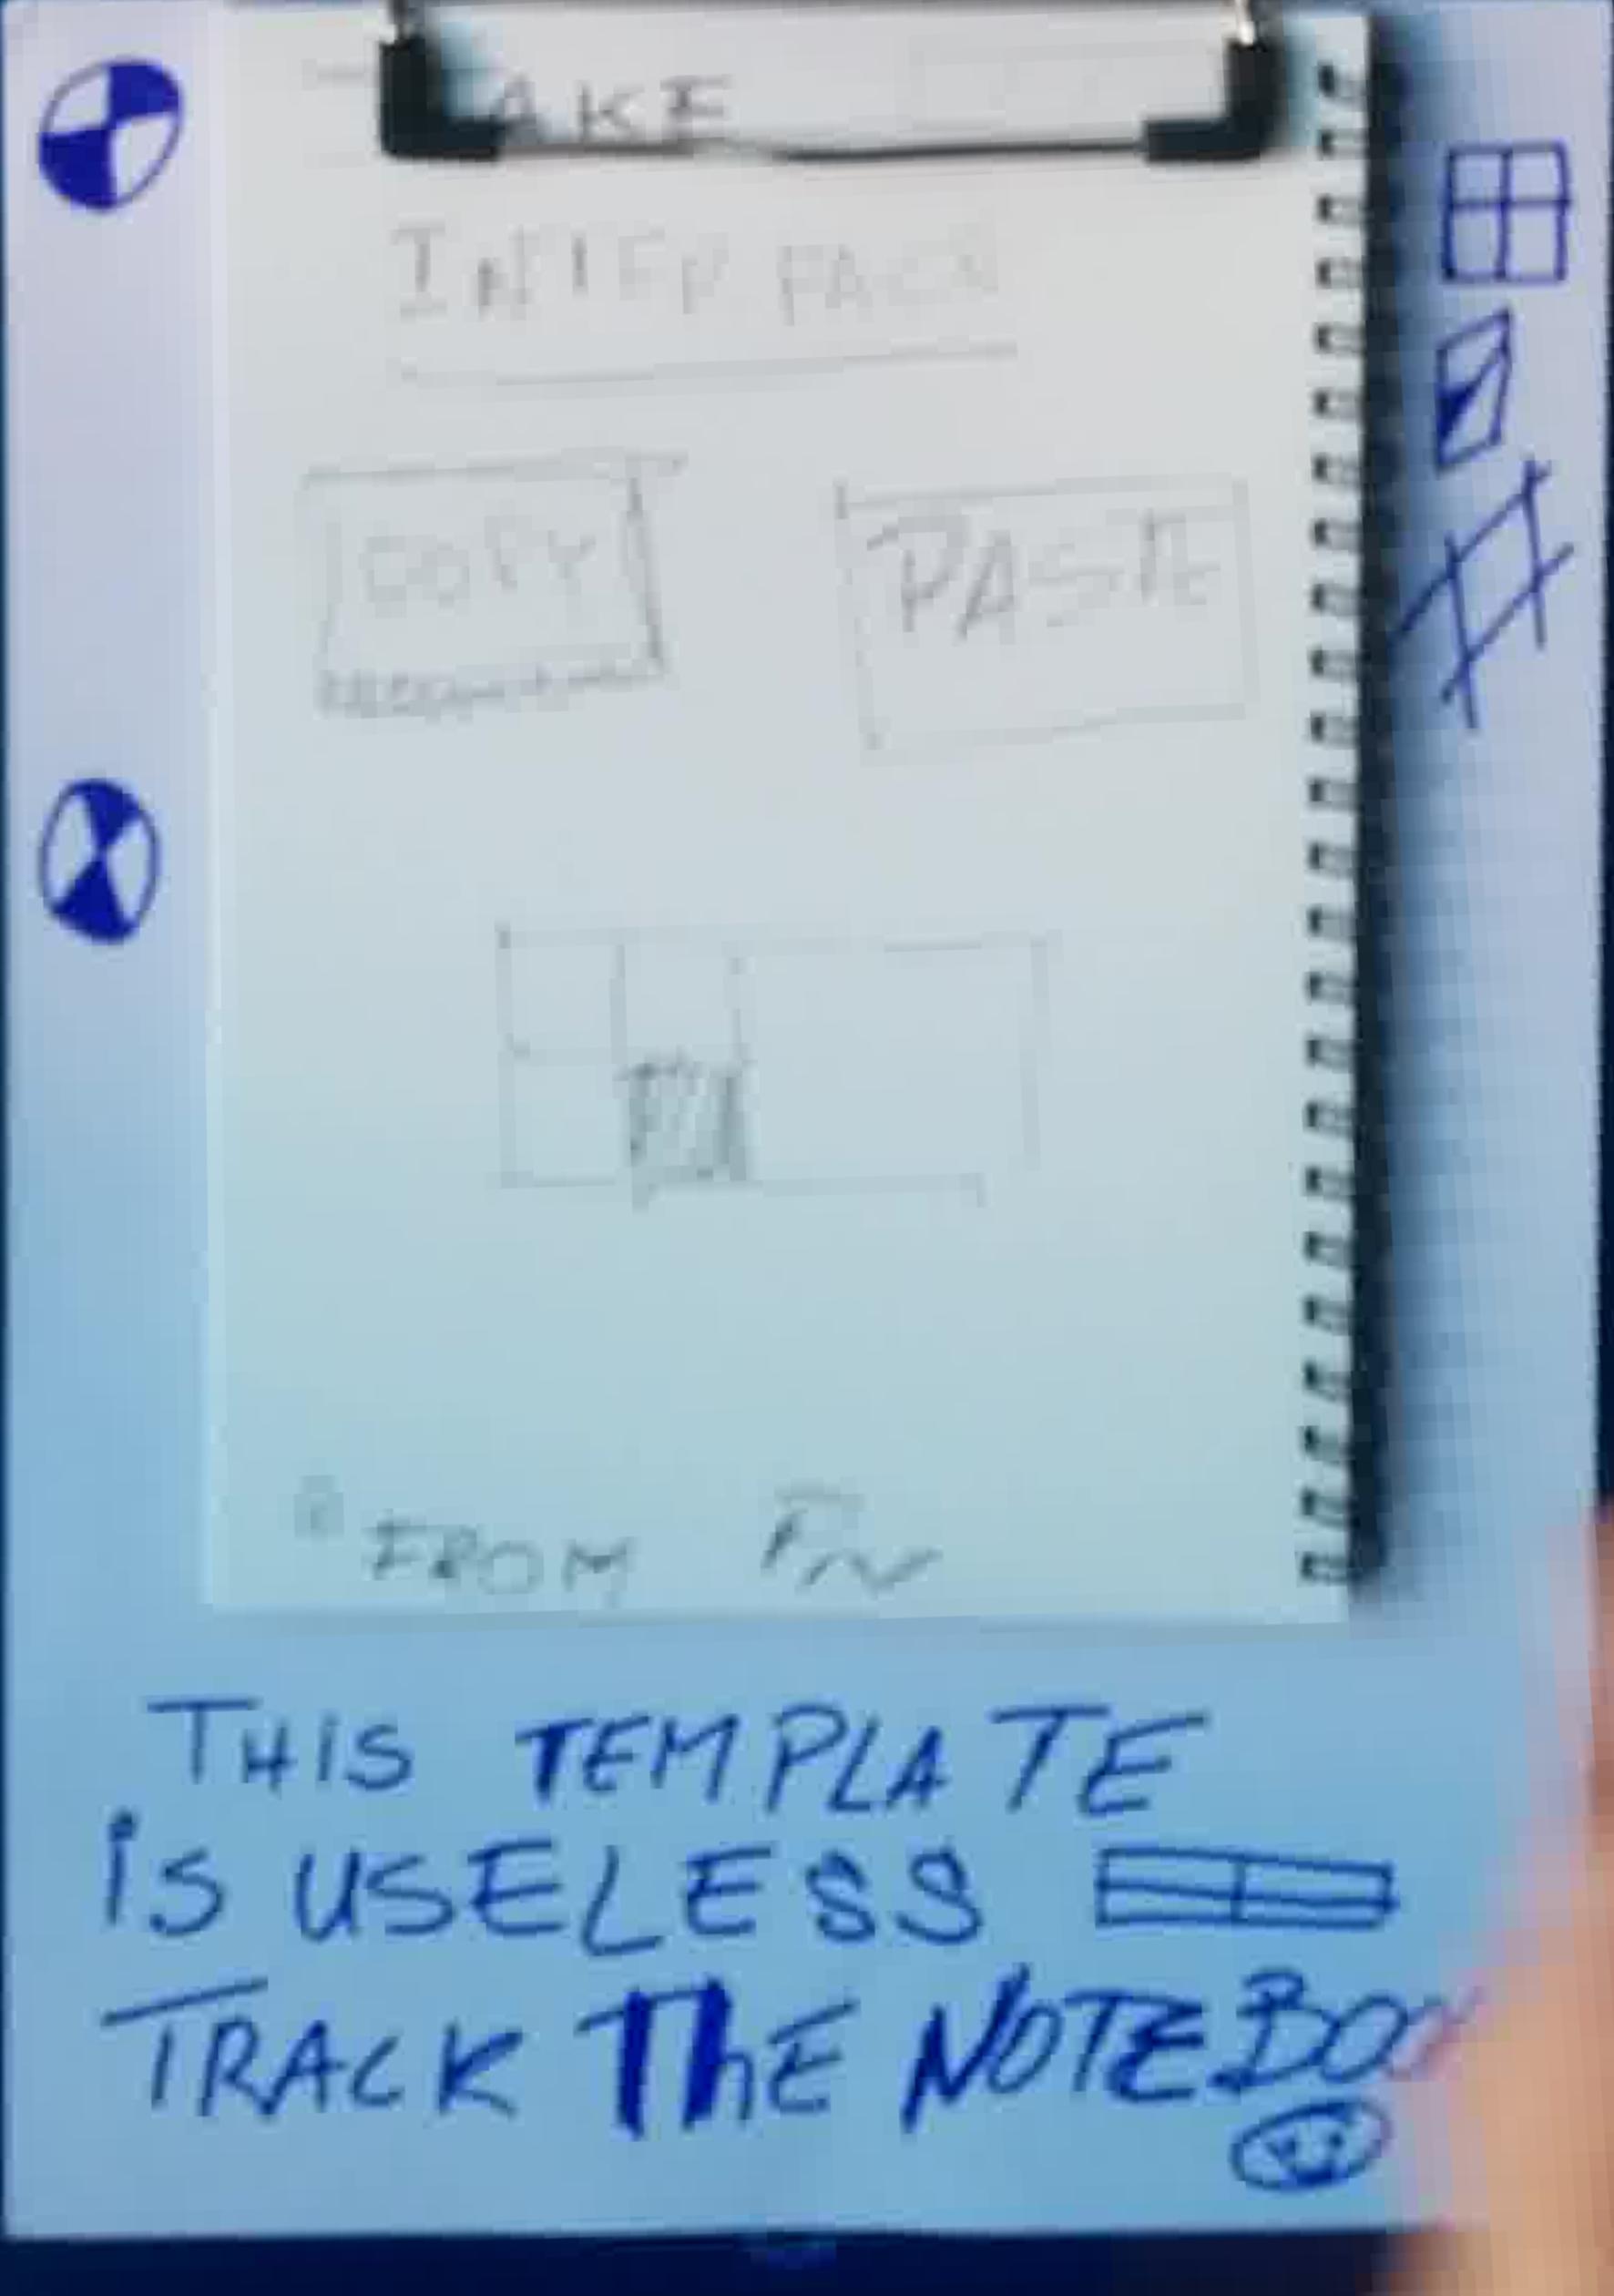 AKE
INTERFACE
COPY PASTE
FROM
THIS TEMPLATE
is USELESS
TRACK ThE NOTEBO